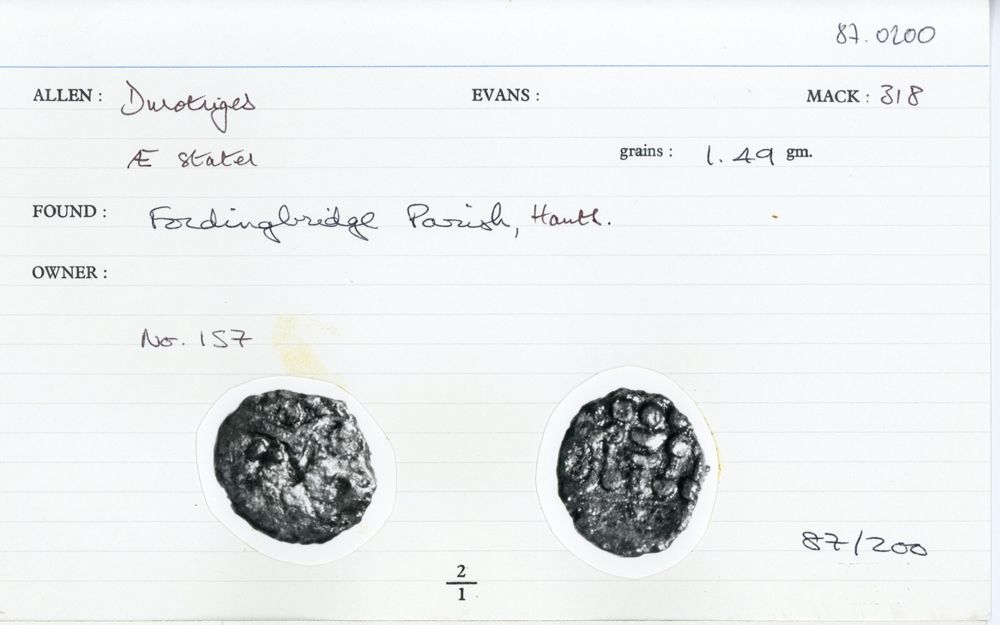 87.0200
ALLEN : Durotriges EVANS : MACK : 318
Æ stater grains : 1.49 gm.
FOUND : Fordingbridge Parish, Hants.
OWNER :
No. 157
87/200
2
1